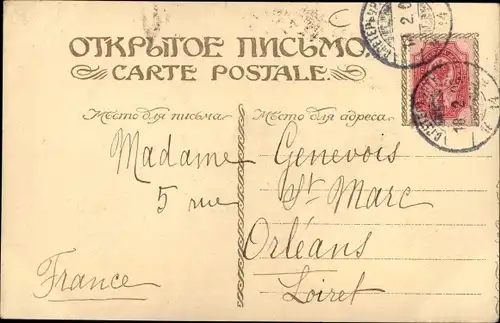 ОТКРЫТОЕ ПИСЬМО.
CARTE POSTALE.
Мѣсто для письма Мѣсто для адреса
Madame Genevois
5 rue St Marc
Orléans
France Loiret